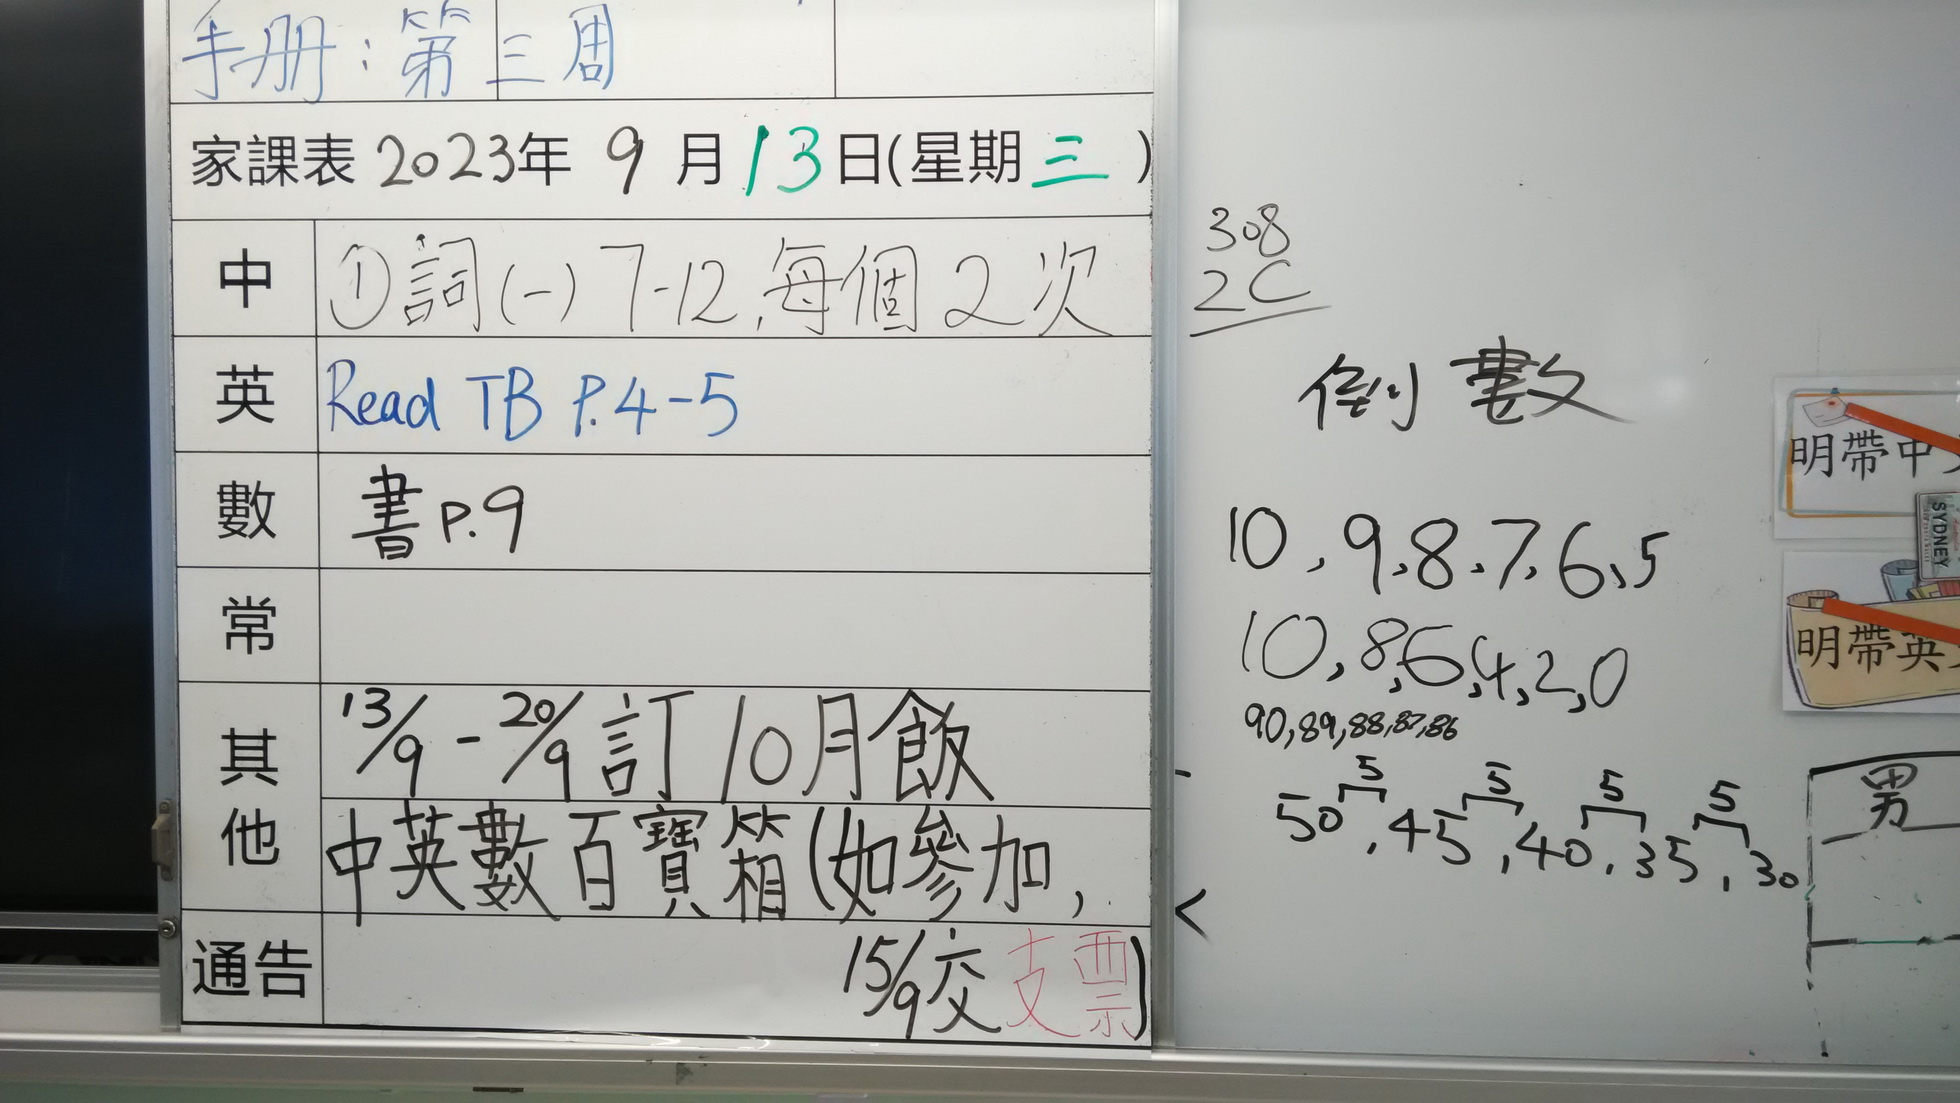 手册：第三周
家課表 2023年 9 月 13 日(星期 三 )
中 ①詞(一) 7-12, 每個 2 次
英 Read TB P.4-5
數 書 P.9
常
其他 13/9 - 20/9 訂 10月飯
中英數百寶箱(如參加，
通告 15/9交支票)
308
2C
倒數
10, 9, 8, 7, 6, 5
10, 8, 6, 4, 2, 0
90, 89, 88, 87, 86
5 5 5 5
50, 45, 40, 35, 30
<
明帶中
SYDNEY
明帶英
男